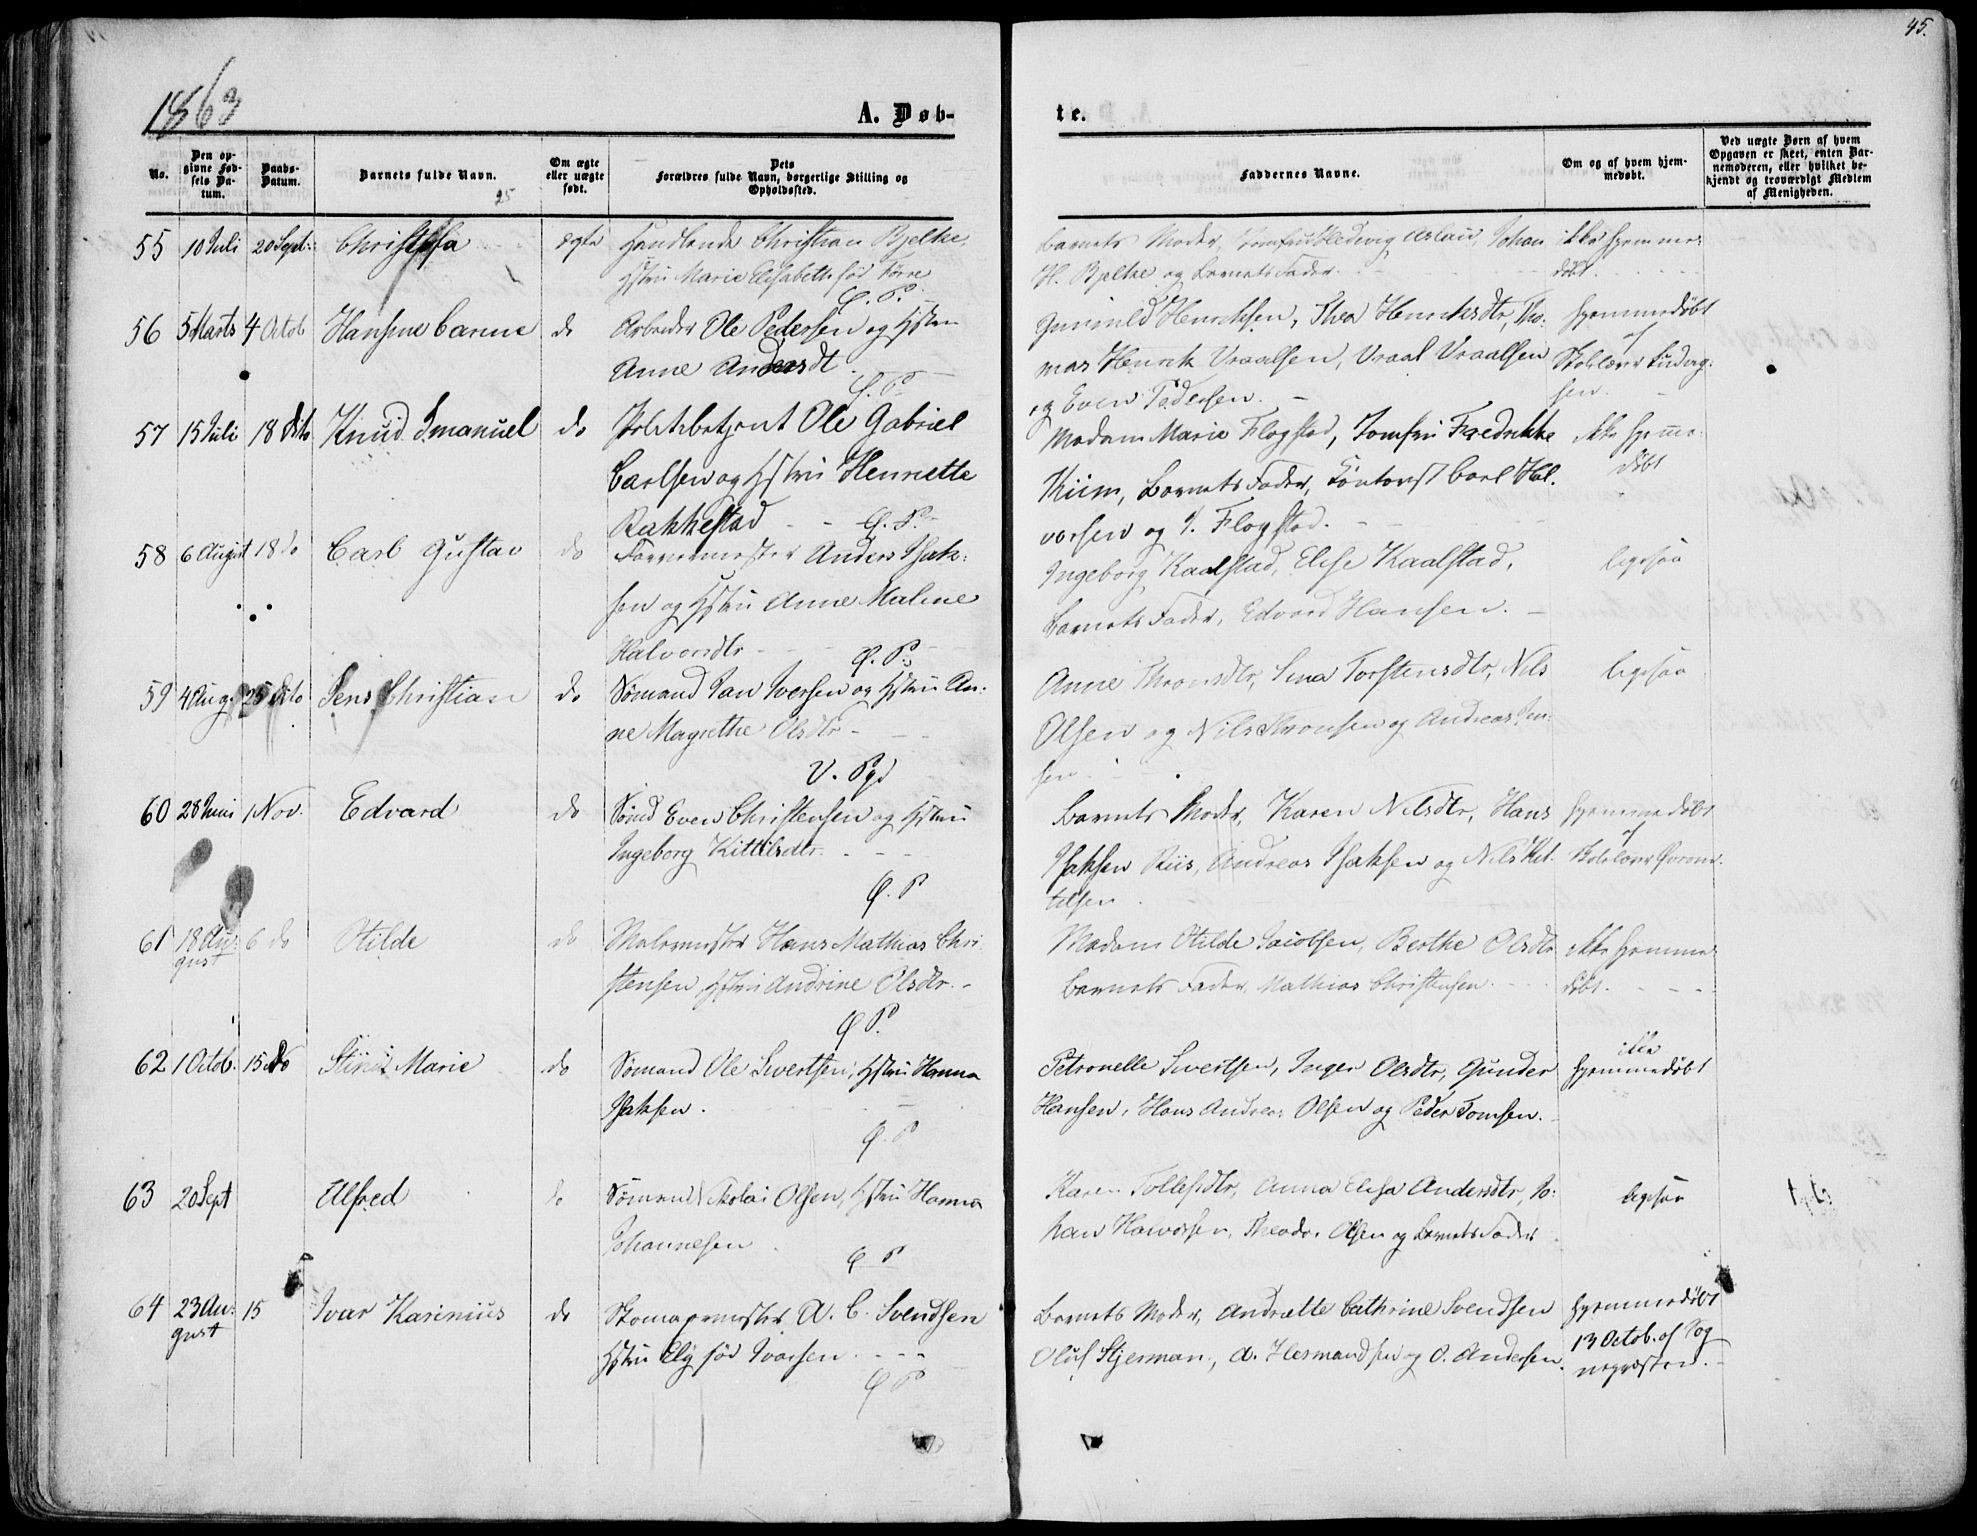 45.
1863
A. Døb-
te.
No.
Den op-
givne Fød-
sels Da-
tum.
Daabs-
Datum.
Barnets fulde Navn.
Om ægte
eller uægte
født.
Dets
Forældres fulde Navn, borgerlige Stilling og
Opholdssted.
Faddernes Navne.
Om og af hvem hjem-
medøbt.
Ved uægte Børn af hvem
Opgaven er skeet, enten Bar-
nemoderen, eller hvilket be-
kjendt og troværdigt Medlem
af Menigheden.
25
55 10 Juli 20 Sept. ægte Handlende Christian Bjelke,
Hstru Marie Elisabeth før Tørre
Ø. P.
Barnets Moder, Johan
H. Bjelke og Barnets Fader.
ikke hjemme-
døbt.
56 5 Marts 4 Octob Hansine Carine do Arbeider Ole Pedersen og Hstru
Anne Andersdt
Ø. P.
Gunnild Henriksen, Thea Henriksdtr, Tho-
mas Henrik Vraalsen, Vraal Vraalsen
og Even Pedersen.
hjemmedøbt
af
Skolelærer Ludvig-
sen.
57 15 Juli 18 dito Knud Imanuel do Politibetjent Ole Gabriel
Carlsen og Hstru Henriette
Rakkestad Ø. P.
Madam Marie Flogstad, Jomfru Fredrikke
Kiim, Barnets Fader, Contorist Carl Hal-
vorsen og I. Flogstad.
ikke hjemme-
døbt
58 6 August 18 do Carl Gustav do Farvermester Anders Isak-
sen og Hstru Anne Maline
Halvorsdtr Ø. P.
Ingeborg Kaalstad, Elise Kaalstad,
Barnets Fader, Edvard Hansen.
ligesaa
59 4 Aug. 25 dito Jens Christian do Sømand Jan Iversen og Hstru An-
ne Magrethe Olsdtr
V. Pgd
Anne Thronsdtr, Sina Torstensdtr, Nils
Olsen og Nils Thronsen og Andreas Jen-
sen
ligesaa
60 28 Juni 1 Nov. Edvard do Sømd Even Christensen og Hstru
Ingeborg Kittilsdtr.
Ø. P
Barnets Moder, Karen Nilsdtr, Hans
Isaksen Riis, Andreas Isaksen og Nils Kit-
telsen
hjemmedøbt
af
Skolelærer
61 18 Au-
gust 6 do Otilde do Malermester Hans Mathias Chri-
stensen, Hstru Andrine Olsdtr.
Ø P.
Madam Otilde Jacobsen, Berthe Olsdtr
Barnets Fader, Mathias Christensen.
ikke hjemme-
døbt.
62 1 Octob. 15 do Marie do Sømand Ole Sivertsen, Hstru Hanna
Isaksen.
Ø. P
Petronelle Sivertsen, Inger Olsdtr, Gunder
Hansen, Hans Andreas Olsen og Peder Tomsen.
ikke
hjemmedøbt
63 20 Sept Alfred do Sømand Nikolai Olsen, Hstru Hanna
Johannesen
Ø P
Karen Tollefsdtr, Anna Elisa Andersdtr, Jo-
han Halvorsen, Theodor Olsen og Barnets Fader
ligesaa
64 23 Au-
gust 15 Ivar Karinius do Skomagermester A. C. Svendsen
Hstru Ely før Ivarsen.
Ø P
Barnets Moder, Andrette Cathrine Svendsen
Oluf Stjerman, A. Hermandsen og O. Andersen.
hjemmedøbt
13 Octob. af Sog-
nepræsten.